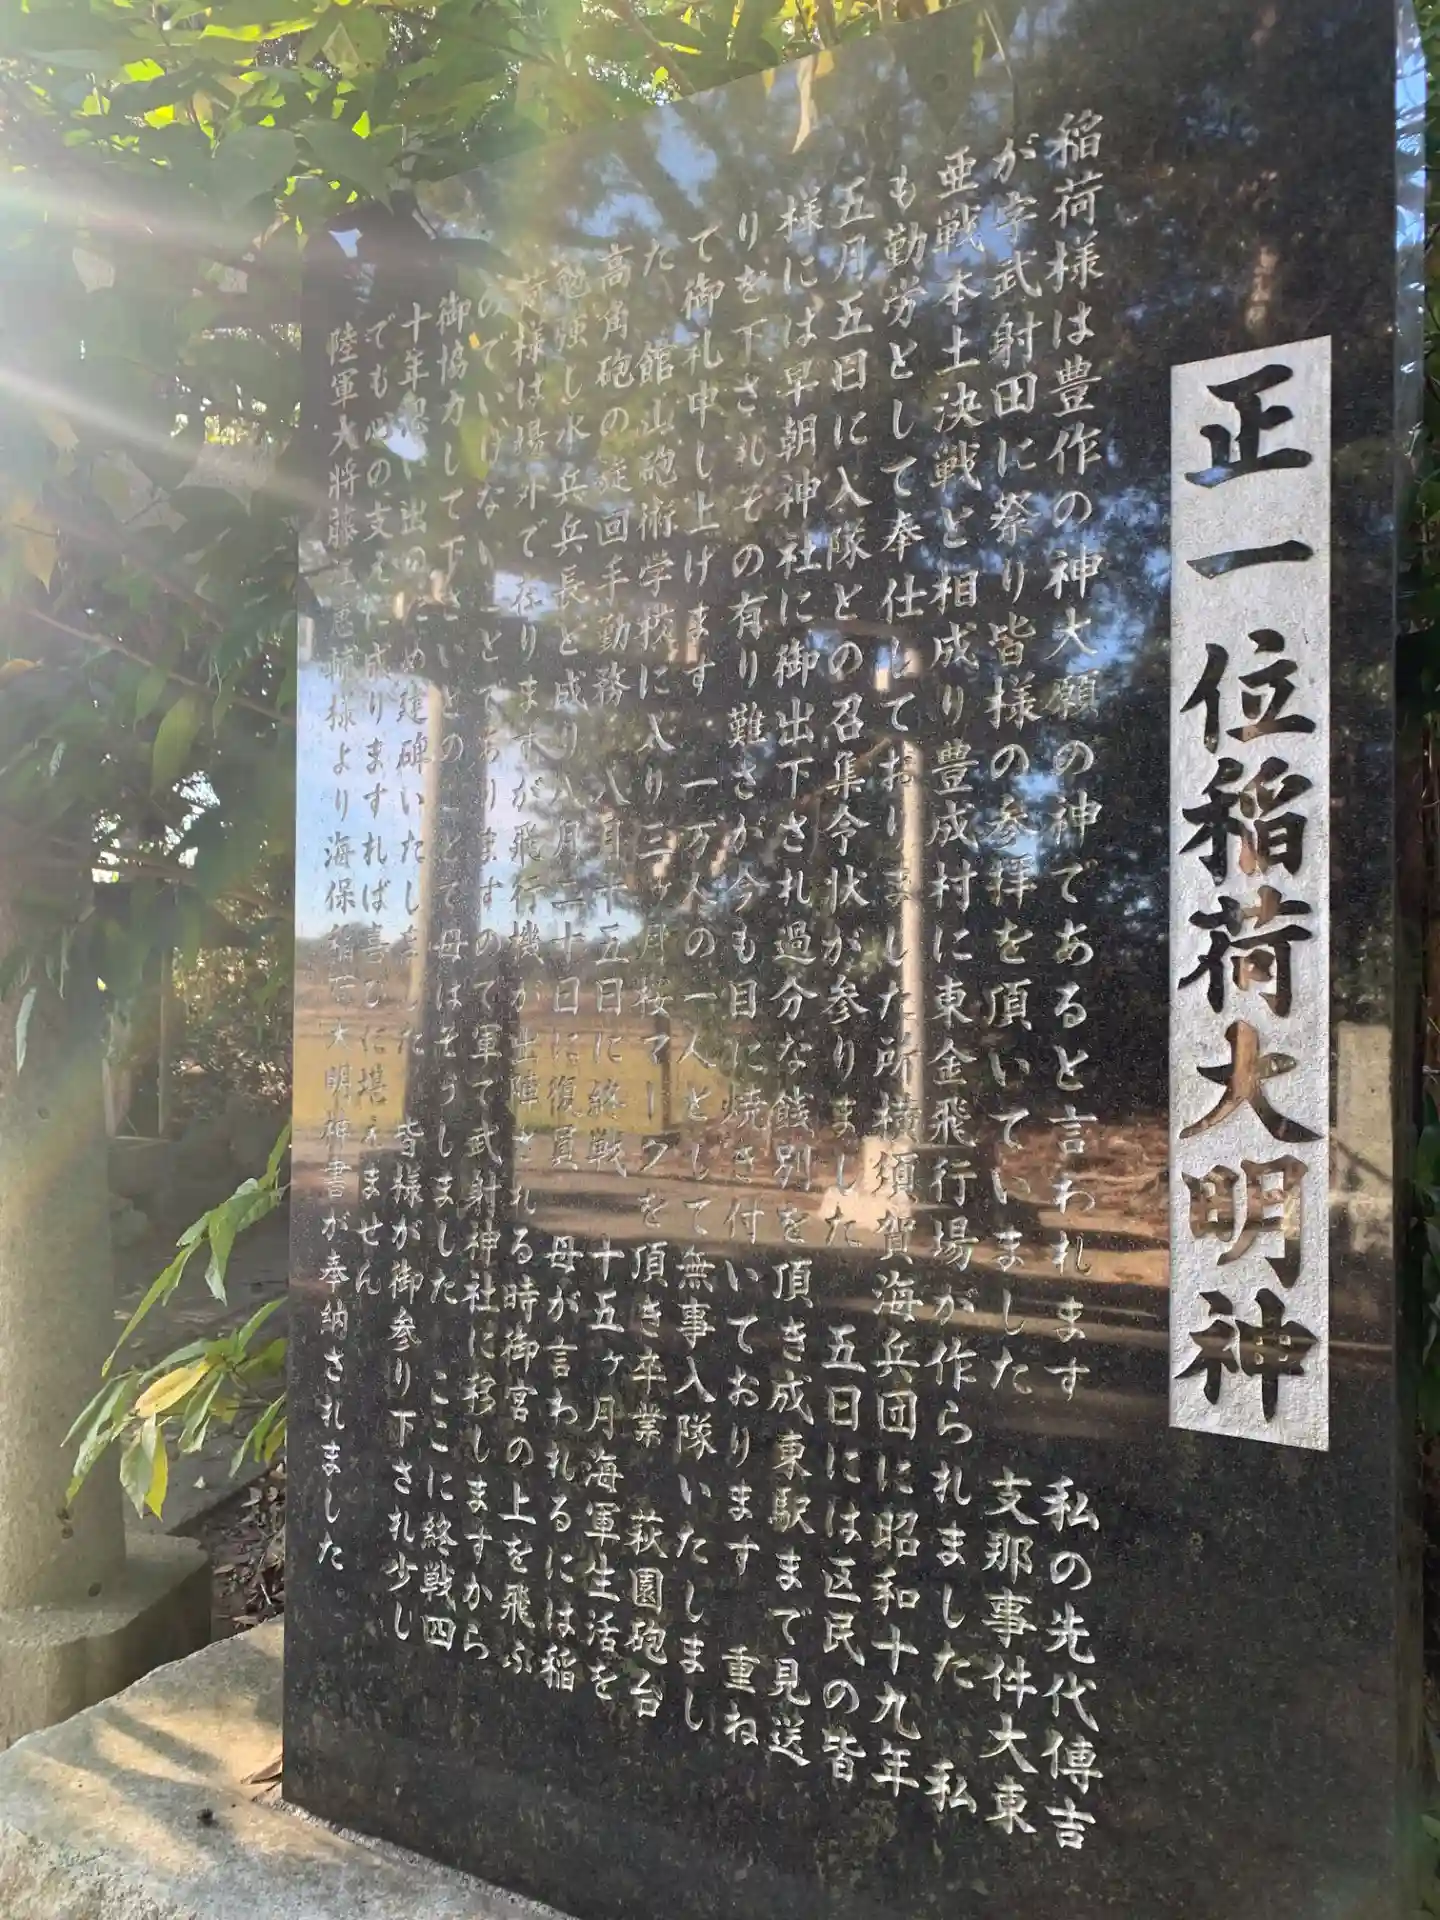 正一位稲荷大明神
稲荷様は豊作の神大願の神であると言われます 私の先代傳吉
が字武射田に祭り皆様の参拝を頂いていました 支那事件大東
亜戦本土決戦と相成り豊成村に東金飛行場が作られました 私
も勤労として奉仕しておりました所横須賀海兵団に昭和十九年
五月五日に入隊との召集令状が参りました 五日には区民の皆
様には早朝神社に御出下され過分な餞別を頂き成東駅まで見送
りを下されその有り難さが今も目に焼き付いております 重ね
て御礼申し上げます 一万人の一人として無事入隊いたしまし
た 館山砲術学校に入り三ヶ月桜マークを頂き卒業 萩園砲台
高角砲の旋回手勤務 八月十五日に終戦 十五ヶ月海軍生活を
勉強し水兵兵長と成り八月二十日に復員 母が言われるには稲
荷様は場外で在りますが飛行機が出陣される時御宮の上を飛ぶ
のでいけないとでありますので軍で武射神社に移しますから
御協力して下さいとのことで母はそうしました ここに終戦四
十年思い出のため建碑いたしました 皆様が御参り下され少し
でも心の支えに成りますれば喜びに堪えません
陸軍大将藤江恵輔様より海保稲荷大明神書が奉納されました